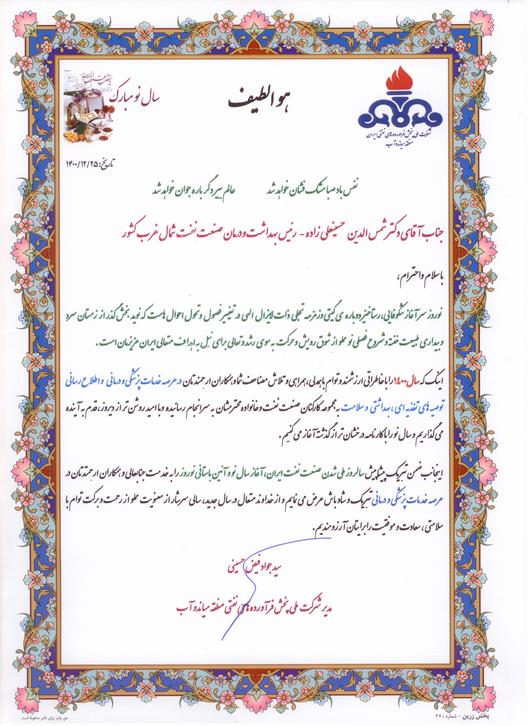 سال نو مبارک
هو الطیف
شرکت ملی پخش فرآورده‌های نفتی ایران
منطقه میاندوآب
تاریخ: ۱۴۰۰/۱۲/۲۵
نفس باد صبا مشک فشان خواهد شد عالم پیر دگر باره جوان خواهد شد
جناب آقای دکتر شمس الدین حسینعلی زاده - رئیس بهداشت و درمان صنعت نفت شمال غرب کشور
با سلام و احترام،
نوروز سرآغاز شکوفایی، رستاخیز دوباره ی گیتی و عرصه تجلی ذات لایزال الهی در تغییر فصول و تحول احوال هاست که نوید بخش گذر از زمستان سرد
و بیداری طبیعت خفته و شروع فصلی نو مملو از شوق رویش و حرکت به سوی رشد و تعالی برای نیل به اهداف متعالی ایران عزیزمان است.
اینک که سال ۱۴۰۰ را با خاطراتی ارزشمند و توام با همدلی، همراهی و تلاش مضاعف شما و همکاران ارجمندتان در عرصه خدمات پزشکی و درمانی و اطلاع رسانی
توصیه های تغذیه ای، بهداشتی و سلامت به مجموعه کارکنان صنعت نفت و خانواده محترمشان به سرانجام رسانیده و با امید روشن تر از دیروز، قدم به آینده
می گذاریم و سال نو را با کارنامه درخشان تر از گذشته آغاز می کنیم.
اینجانب ضمن تبریک پیشاپیش سالروز ملی شدن صنعت نفت ایران، آغاز سال نو و آئین باستانی نوروز را به خدمت جنابعالی و همکاران ارجمندتان در
عرصه خدمات پزشکی و درمانی تبریک و شادباش عرض می نمایم و از خداوند متعال در سال جدید، سالی سرشار از معنویت مملو از رحمت و برکت توام با
سلامتی، سعادت و موفقیت را برایتان آرزومندیم.
سید جواد فیض حسینی
مدیر شرکت ملی پخش فرآورده های نفتی منطقه میاندوآب
پخش زرین - شماره ۲۲۰
حق چاپ برای ناشر محفوظ است.